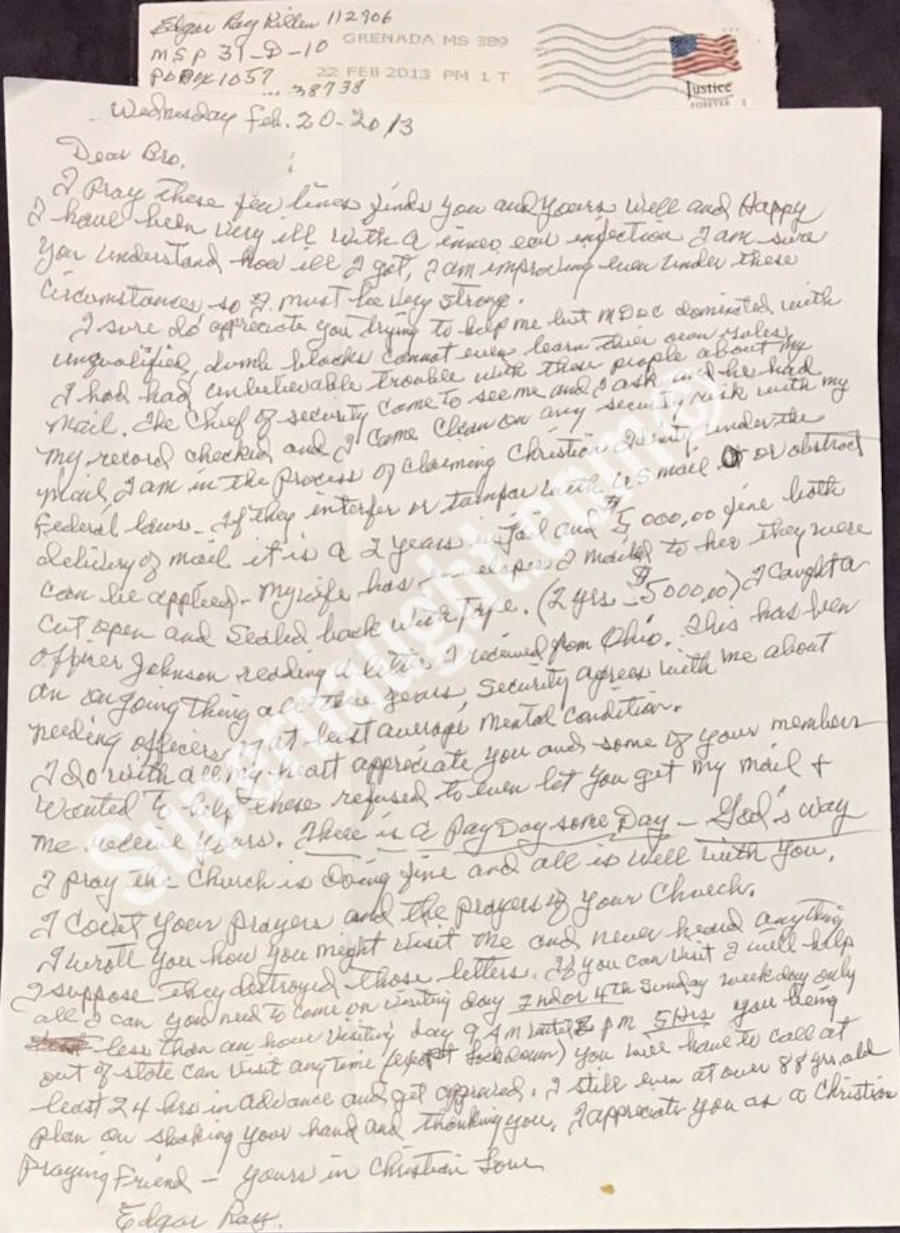 Edgar Ray Killen 112906
MSP 31-D-10
PO Box 1057
38738
GRENADA MS 389
22 FEB 2013 PM 1 T
Justice
FOREVER
Wednesday Feb. 20-2013
Dear Bro.
I Pray these few lines finds you and yours well and Happy
I have been very ill with a inner ear infection I am sure
you understand how ill I got, I am improving even under these
circumstances, so I must be very strong.
I sure do appreciate you trying to help me but MDOC dominated with
unqualified, dumb blocks cannot even learn their own rules,
I had had unbelievable trouble with those people about my
mail. The Chief of security came to see me and I ask and he had
my record checked and I came clean on any security risk with my
mail, I am in the process of claiming Christian Identity under the
Federal laws. If they interfer or tamper with US mail or abstract
delivery of mail it is a 2 years in Jail and $5000.00 fine both
can be applied - My wife has envelopes I mailed to her they were
cut open and sealed back with tape. (2 yrs - $5000.00) I caught a
officer Johnson reading a letter I received from Ohio. This has been
an ongoing thing all these years, Security agrees with me about
needing officers at least average mental condition.
I do with all my heart appreciate you and some of your members
wanted to help these refused to even let you get my mail +
me receive yours. There is a Pay Day some Day - God's way
I pray the Church is doing fine and all is well with you.
I covet your prayers and the prayers of your Church.
I wrote you how you might visit me and never heard anything
I suppose they destroyed those letters. If you can visit I will help
all I can you need to come on visiting day 2nd or 4th Sunday weekday only
less than an hour visiting day 9 AM until pm 5 Hrs you being
out of state can visit any time (except lockdown) you will have to call at
least 24 hrs in advance and get approved. I still even at over 88 yrs. old
plan on shaking your hand and thanking you. I appreciate you as a Christian
Praying Friend - yours in Christian Love
Edgar Ray.
Supernaught.com